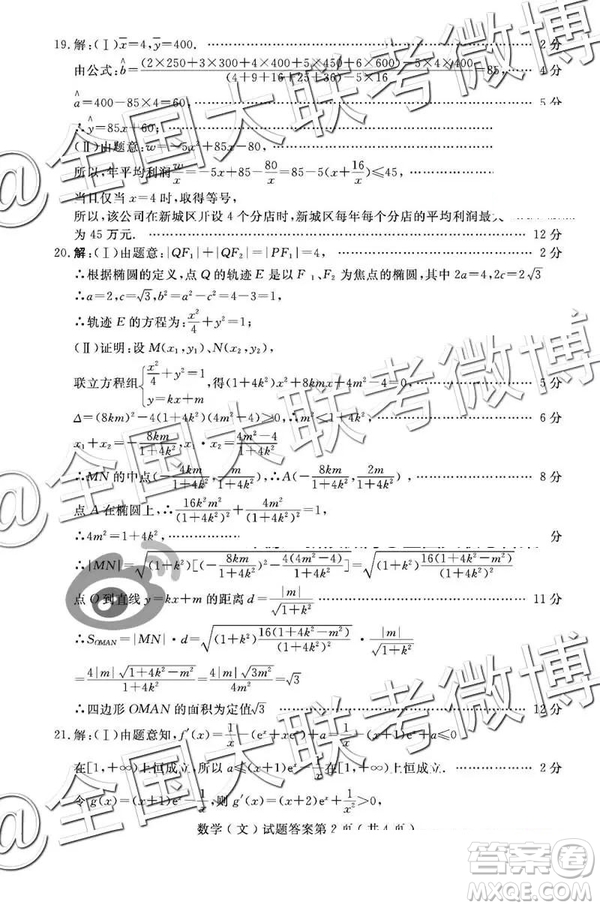 19.解:(Ⅰ)x̄=4,ȳ=400. 2分
由公式:b̂=(2×250+3×300+4×400+5×450+6×600)-5×4×400/(4+9+16+25+36)-5×16=85, 4分
â=400-85×4=60, 5分
∴ŷ=85x+60;
(Ⅱ)由题意:w=-5x²+85x-80,
所以,年平均利润w/x=-5x+85-80/x=85-5(x+16/x)≤45,
当且仅当x=4时,取得等号,
所以,该公司在新城区开设4个分店时,新城区每年每个分店的平均利润最
为45万元. 12分
20.解:(Ⅰ)由题意:|QF₁|+|QF₂|=|PF₁|=4, 2分
∴根据椭圆的定义,点Q的轨迹E是以F₁、F₂为焦点的椭圆,其中2a=4,2c=2√3
∴a=2,c=√3,b²=a²-c²=4-3=1,
∴轨迹E的方程为:x²/4+y²=1;
(Ⅱ)证明:设M(x₁,y₁)、N(x₂,y₂),
联立方程组{x²/4+y²=1 y=kx+m,得(1+4k²)x²+8kmx+4m²-4=0, 5分
Δ=(8km)²-4(1+4k²)(4m²-4)>0,∴m²<1+4k², 6分
x₁+x₂=-8km/1+4k²,x₁·x₂=4m²-4/1+4k²
∴MN的中点(-4km/1+4k²,m/1+4k²),∴A(-8km/1+4k²,2m/1+4k²), 8分
点A在椭圆上,∴16k²m²/(1+4k²)²+4m²/(1+4k²)²=1
∴4m²=1+4k², 分
∴|MN|=√(1+k²)[(-8km/1+4k²)²-4(4m²-4)/1+4k²]=√(1+k²)16(1+4k²-m²)/(1+4k²)²
点O到直线y=kx+m的距离d=|m|/√1+k², 11分
∴S_OMAN=|MN|·d=√(1+k²)16(1+4k²-m²)/(1+4k²)²×|m|/√1+k²
=4|m|√1+4k²-m²/1+4k²=4|m|√3m²/4m²=√3
∴四边形OMAN的面积为定值√3 12分
21.解:(Ⅰ)由题意知,f′(x)=1/x-(eˣ+xeˣ)+a=1/x-(x+1)eˣ+a≤0
在[1,+∞)上恒成立,所以a≤(x+1)eˣ-1/x在[1,+∞)上恒成立. 2分
令g(x)=(x+1)eˣ-1/x,则g′(x)=(x+2)eˣ+1/x²>0,
数学(文)试题答案第2页(共4页)
@全国大联考微博
@全国大联考微博
@全国大联考微博
答案圈
MXQE.COM